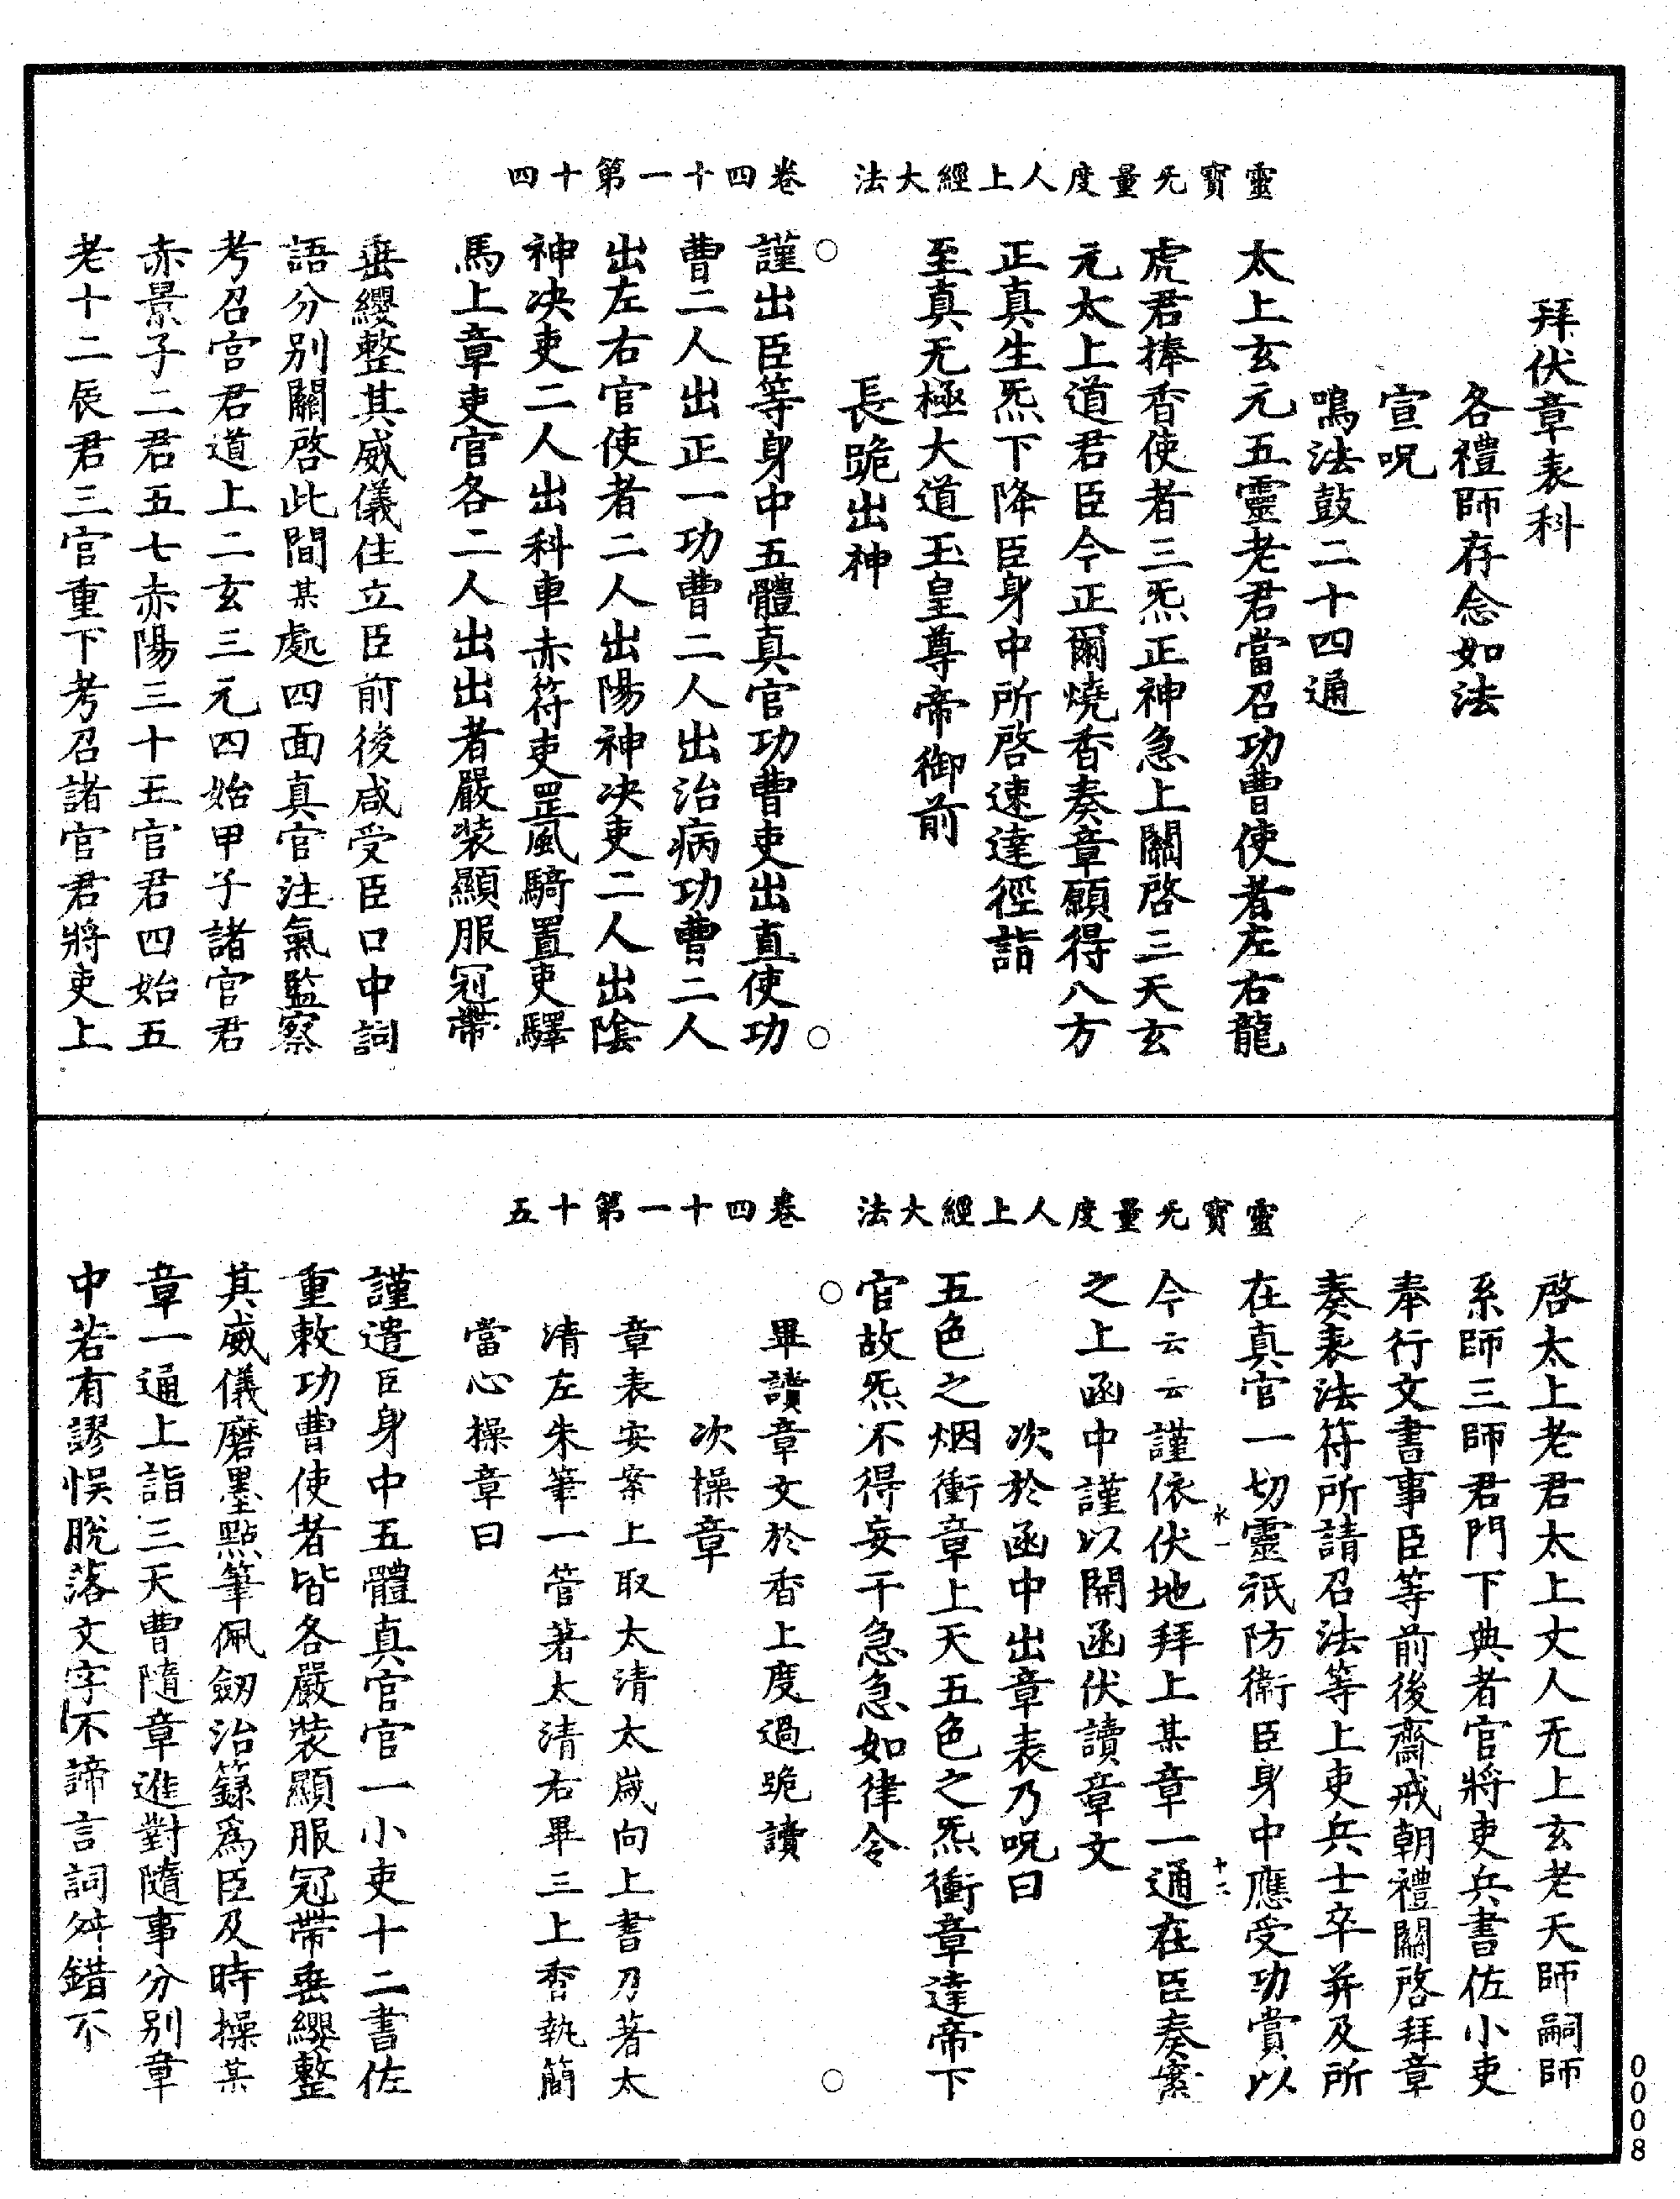 靈寶无量度人上經大法　卷四十一第十四
拜伏章表科
各禮師存念如法
宣呪
鳴法鼓二十四通
太上玄元五靈老君當召功曹使者左右龍
虎君捧香使者三炁正神急上關啓三天玄
元太上道君臣今正爾燒香奏章願得八方
正真生炁下降臣身中所啓速達徑詣
至真无極大道玉皇尊帝御前
長跪出神
謹出臣等身中五體真官功曹吏出直使功
曹二人出正一功曹二人出治病功曹二人
出左右官使者二人出陽神決吏二人出陰
神決吏二人出科車赤符吏罡風騎置吏驛
馬上章吏官各二人出出者嚴裝顯服冠帶
垂纓整其威儀住立臣前後咸受臣口中詞
語分別關啓此間某處四面真官注氣監察
考召官君道上二玄三元四始甲子諸官君
赤景子二君五七赤陽三十五官君四始五
老十二辰君三官重下考召諸官君將吏上
靈寶无量度人上經大法　卷四十一第十五
啓太上老君太上丈人无上玄老天師嗣師
系師三師君門下典者官將吏兵書佐小吏
奉行文書事臣等前後齋戒朝禮關啓拜章
奏表法符所請召法等上吏兵士卒并及所
在真官一切靈祇防衛臣身中應受功賞以
水一　十二
今云云謹依伏地拜上某章一通在臣奏案
之上函中謹以開函伏讀章文
次於函中出章表乃呪曰
五色之烟衝章上天五色之炁衝章達帝下
官故炁不得妄干急急如律令
畢讀章文於香上度過跪讀
次操章
章表安案上取太清太歲向上書刀著太
清左朱筆一管著太清右畢三上香執簡
當心操章曰
謹遣臣身中五體真官官一小吏十二書佐
重敕功曹使者皆各嚴裝顯服冠帶垂纓整
其威儀磨墨點筆佩劒治籙爲臣及時操某
章一通上詣三天曹隨章進對隨事分別章
中若有謬悞脫落文字不諦言詞舛錯不
0008